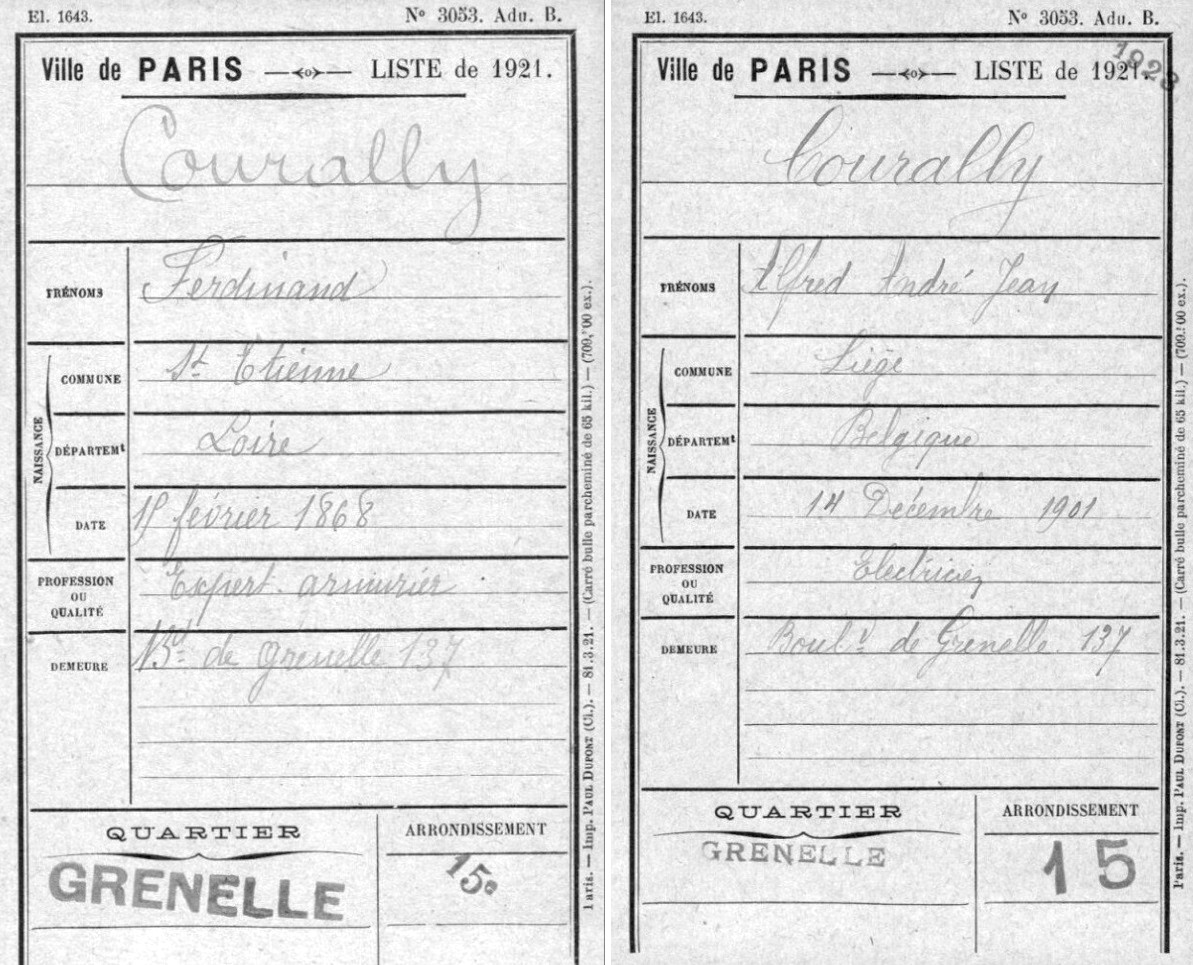 El. 1643.
Nº 3053. Adu. B.
Ville de PARIS
LISTE de 1921.
Courally
PRÉNOMS
Ferdinand
NAISSANCE
COMMUNE
St Etienne
DÉPARTEMt
Loire
DATE
février 1868
PROFESSION
OU
QUALITÉ
Expert armurier
DEMEURE
Bd de Grenelle 137
QUARTIER
GRENELLE
ARRONDISSEMENT
15e
Paris. — Imp. PAUL DUPONT (Cl.). — 81.3.21. — (Carré bulle parcheminé de 65 kil.) —
El. 1643.
Nº 3053. Adu. B.
Ville de PARIS
LISTE de 1921.
1923
Courally
PRÉNOMS
Alfred André Jean
NAISSANCE
COMMUNE
Liège
DÉPARTEMt
Belgique
DATE
14 Décembre 1901
PROFESSION
OU
QUALITÉ
Electricien
DEMEURE
Boulvd de Grenelle 137
QUARTIER
GRENELLE
ARRONDISSEMENT
15
Paris. — Imp. PAUL DUPONT (Cl.). — 81.3.21. — (Carré bulle parcheminé de 65 kil.) —